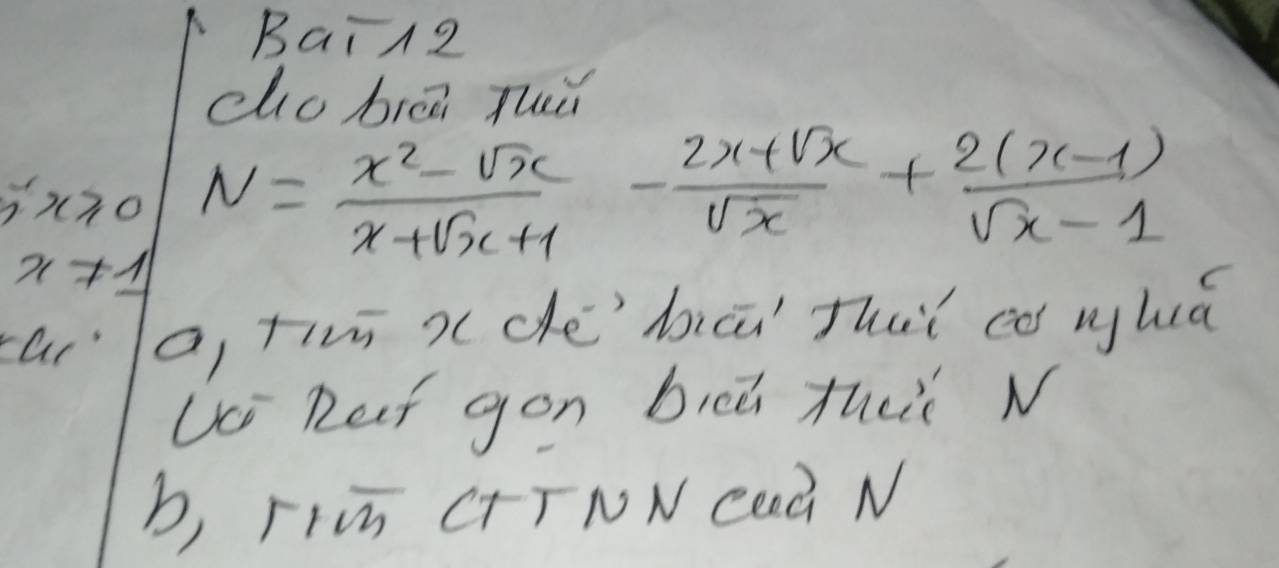 Bài 12
cho biểu thức
N = \frac{x² - √x}{x + √x + 1} - \frac{2x + √x}{√x} + \frac{2(x - 1)}{√x - 1}
x ≥ 0
x ≠ 1
a, tìm x để biểu thức có nghĩa
Và Rút gọn biểu thức N
b, Tìm GTNN của N